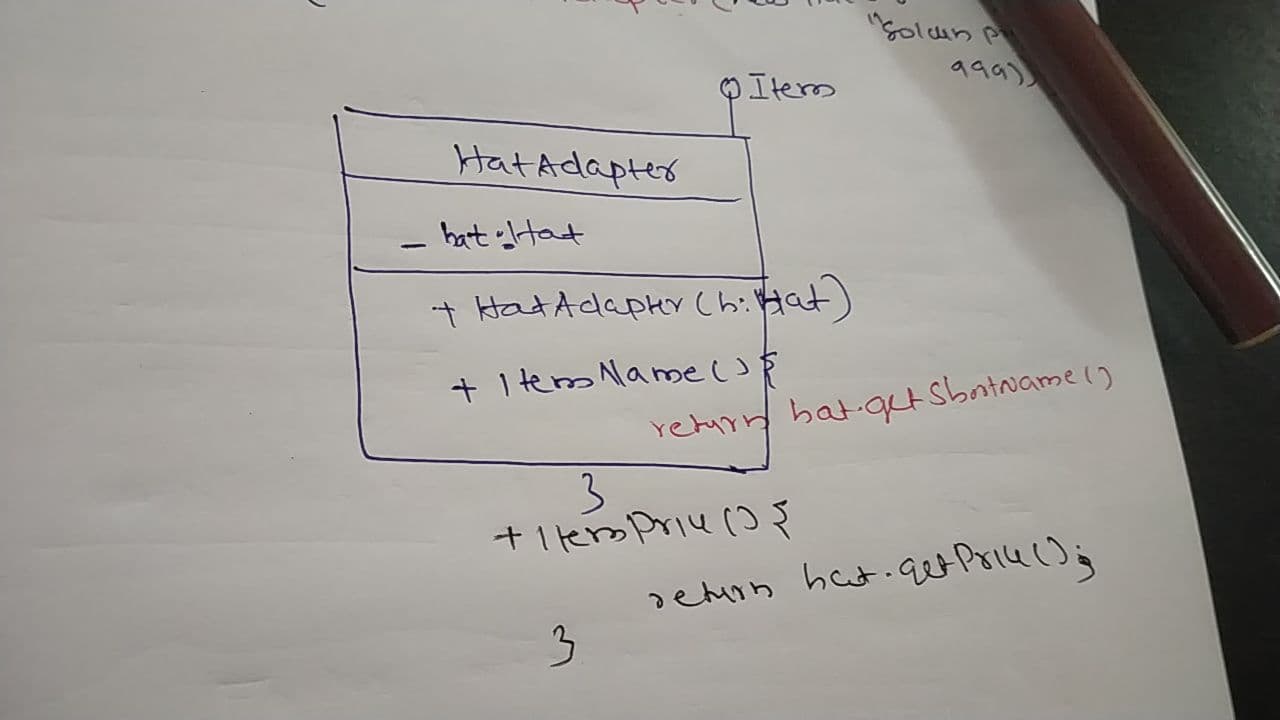 "Golden
999))
Item
HatAdapter
- hat:Hat
+ HatAdapter(h:Hat)
+ ItemName(){
return hat.getShortName()
}
+ItemPrice(){
return hat.getPrice();
}